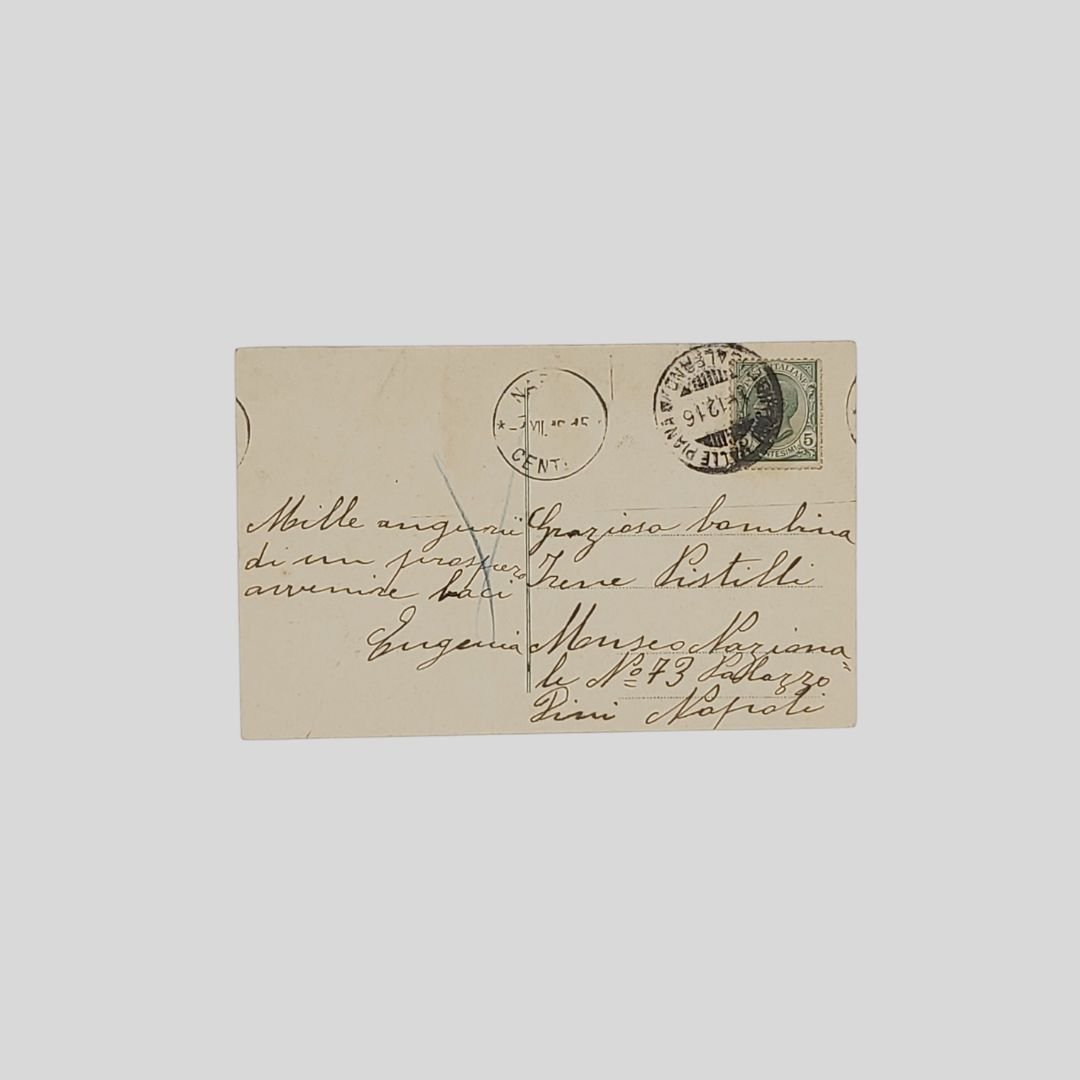 CENT
14.12.16
POSTE ITALIANE
CENTESIMI 5
Mille angurii
di un prospero
avvenire baci
Eugenia
Graziosa bambina
Irene Pistilli
Museo Naziona=
le No 73 Palazzo
Pini Napoli